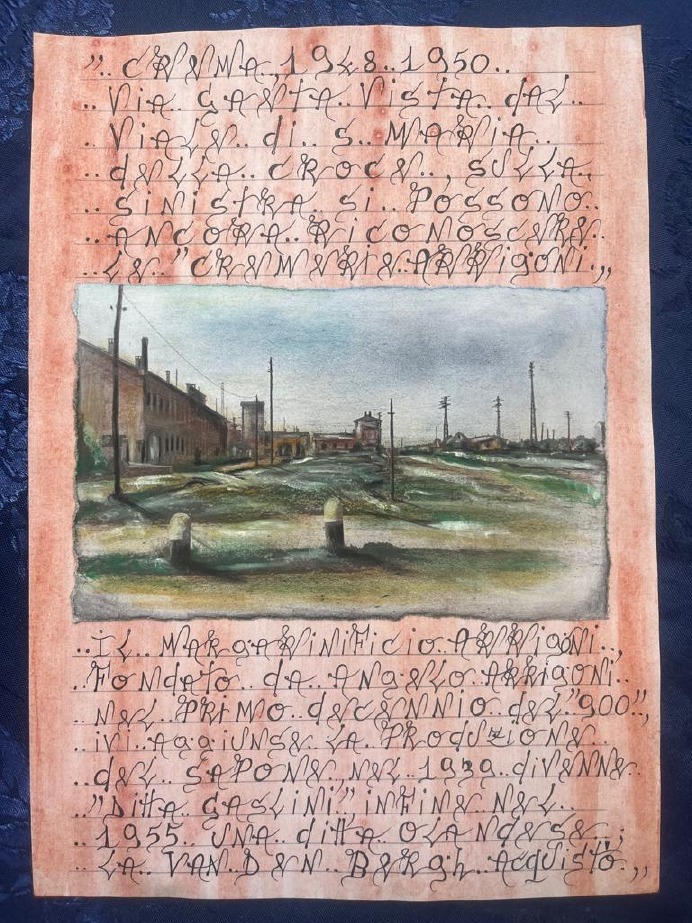 ".. CREMA, 1948..1950..
.. Via Gaeta.. Vista.. dal..
.. Viale.. di.. S. MARia..
.. della.. CROCE.., SULLA..
.. siNistRA.. si.. POSSONO..
.. ANCORA.. RiCONOSCERE..
.. le.. "CREMERiE..ARRigoni.,,
..IL.. MARgARiNiFiCiO..ARRigoni..,
..FONdato.. dA.. ANgELO..ARRigoni..
.. NEL.. PRiMO.. dECENNiO.. dEL.."900",
.. iVi.. AggiUNSE.. LA.. PROdUZiONE..
.. dEL.. SAPONE.., NEL.. 1939.. diVENNE..
.. "DittA.. GASLiNi" iNFiNE.. NEL..
.. 1955.. UNA.. dittA.. OLANdESE..,
.. LA.. VAN..DEN.. BERgh.. ACqUiStò..,,